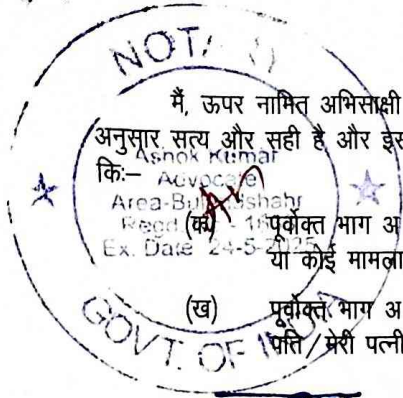 NOTARY
मैं, ऊपर नामित अभिसाक्षी
अनुसार सत्य और सही है और इस
कि:–
Ashok Kumar
Advocate
Area-Bulandshahr
Regd.
Ex. Date 24-5-2025
(क) पूर्वोक्त भाग अ
या कोई मामला
(ख) पूर्वोक्त भाग अ
पति / मेरी पत्नी
GOVT. OF INDIA